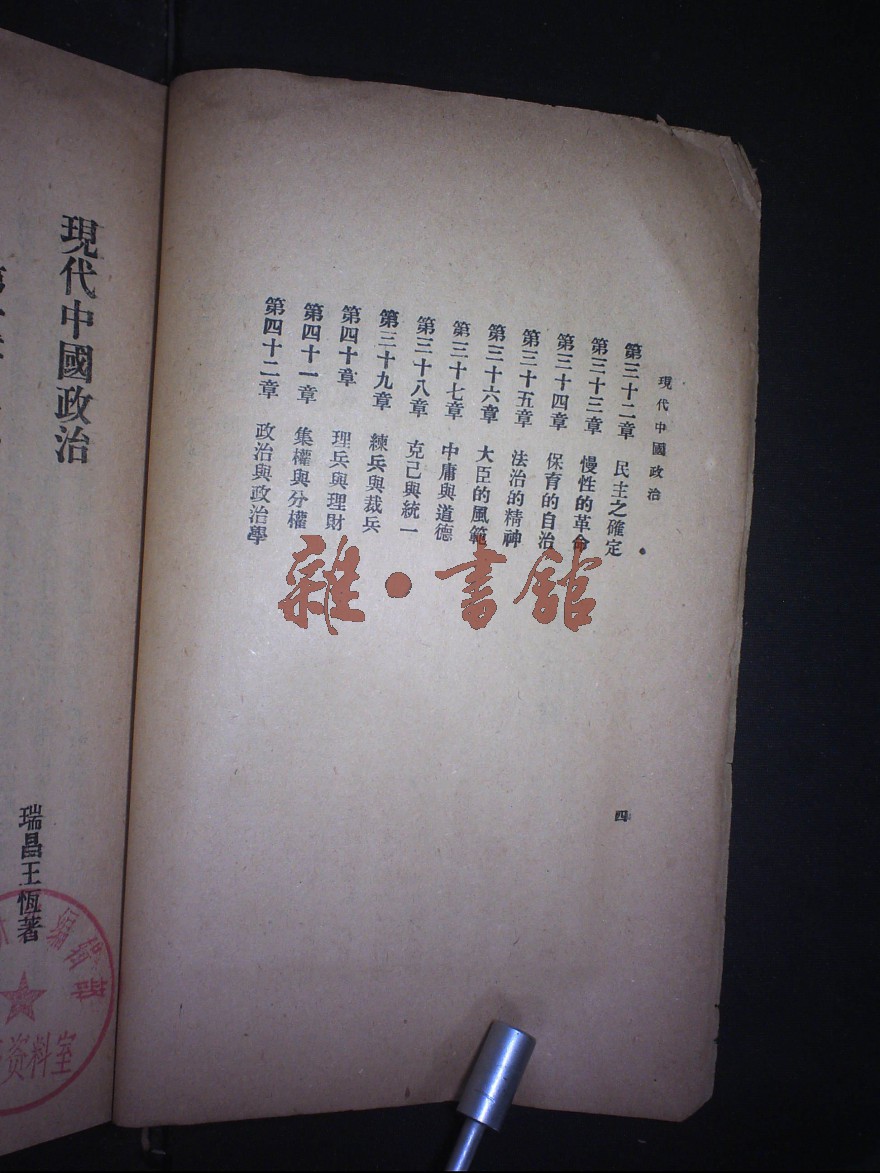 現代中國政治
第三十二章 民主之確定
第三十三章 慢性的革命
第三十四章 保育的自治
第三十五章 法治的精神
第三十六章 大臣的風範
第三十七章 中庸與道德
第三十八章 克己與統一
第三十九章 練兵與裁兵
第四十章 理兵與理財
第四十一章 集權與分權
第四十二章 政治與政治學
四
雜·書館
現代中國政治
瑞昌王恆著
編輯
资料室